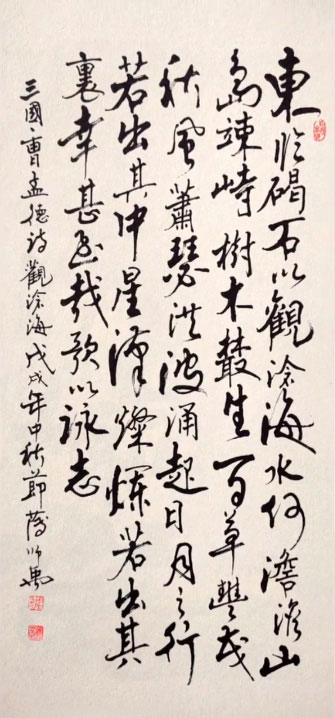 東臨碣石以觀滄海水何澹澹山
島竦峙樹木叢生百草豐茂
秋風蕭瑟洪波涌起日月之行
若出其中星漢燦爛若出其
裏幸甚至哉歌以詠志
三國·曹孟德詩觀滄海戊戌年中秋節